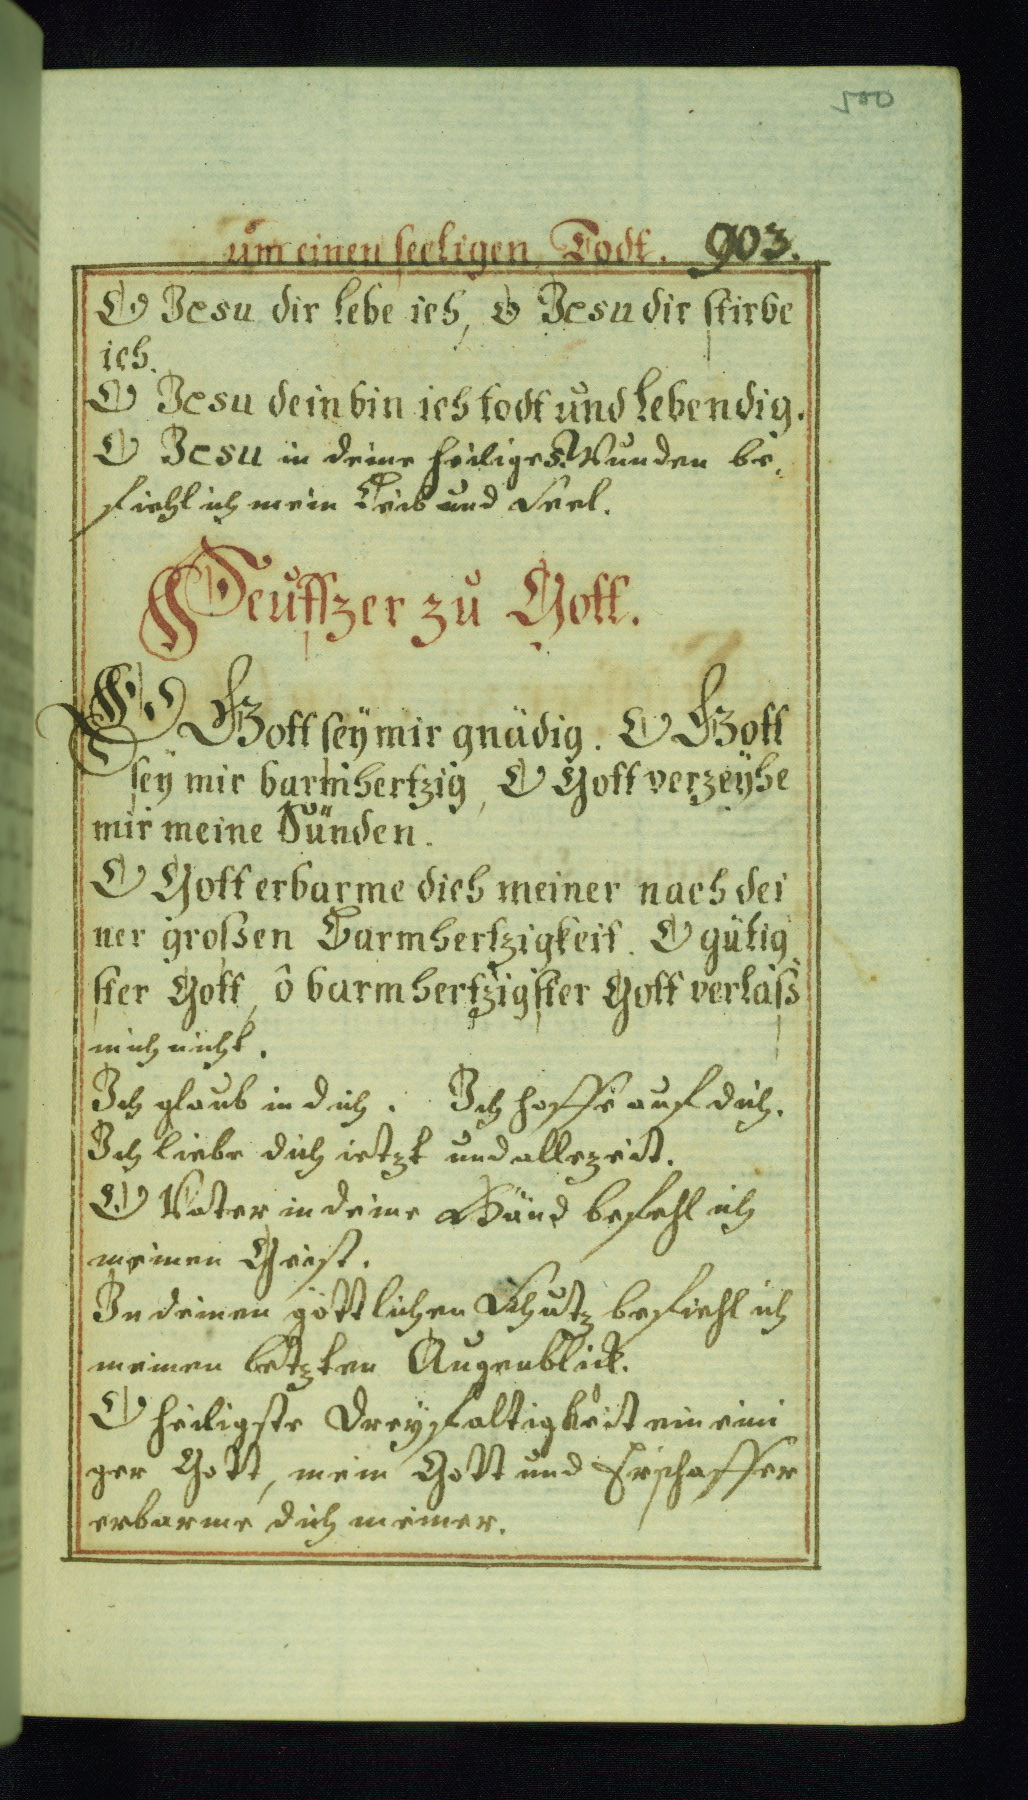 500
um einen seeligen Todt. 903.
O Jesu dir lebe ich, o Jesu dir stirbe
ich.
O Jesu dein bin ich todt und lebendig.
O Jesu in deine heilige 5. Wunden be,
fiehl ich mein Leib und Seel.
Seuffzer zu Gott.
O Gott seÿ mir gnädig. O Gott
seÿ mir barmhertzig, O Gott verzeÿhe
mir meine Sünden.
O Gott erbarme dich meiner nach dei
ner großen Barmhertzigkeit. O gütig
ster Gott, ô barmhertzigster Gott verlaß
mich nicht.
Ich glaub in dich. Ich hoffe auf dich.
Ich liebe dich ietzt und allezeit.
O Vater in deine Händ befehl ich
meinen Geist.
In deinen göttlichen Schutz befiehl ich
meinen letzten Augenblick.
O heiligste Dreyfaltigkeit ein eini
ger Gott, mein Gott und Erschaffer
erbarme dich meiner.